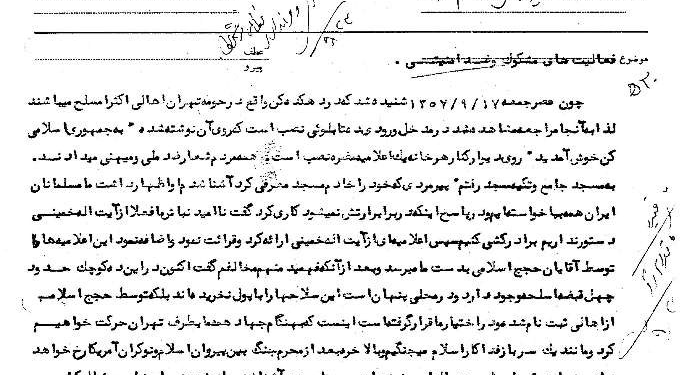 موضوع فعالیت های مشکوک وضد امنیتی .
عطف
پیرو
چون عصرجمعه ۱۳۵۷/۹/۱۷ شنیده شد که در دهکده کن واقع در حومه تهران اهالی اکثرا مسلح میباشند
لذا به آنجا مراجعه مشاهده شد در مدخل ورود به ده تابلوئی نصب است که روی آن نوشته شده " به جمهوری اسلامی
کن خوش آمدید " روی دیوار کنار هر خانه یک اعلامیه مضره نصب است همه مردم شعار ضد ملی و میهنی میدادند.
به مسجد جامع وتکیه مسجد رفتم پیرمردی که خود را خادم مسجد معرفی کرد آشنا شدم واظهار داشت ما مسلمانان
ایران همه بپا خواسته ایم ود رپاسخ اینکه در برابر ارتش نمیشود کاری کرد گفت ناامید نباش ما فعلا از آیت اله خمینی
دستور نداریم برادرکشی کنیم سپس اعلامیه ای از آیت اله خمینی ارائه کرد وقرائت نمود واضافه نمود این اعلامیه ها
توسط آقایان حجج اسلامی بدست ما میرسد وبعد از آنکه فهمید منهم مخالفم گفت اکنون در این ده کوچک حدود
چهل قبضه اسلحه وجود دارد ودر محلی پنهان است این سلاحها را با پول نخریده اند بلکه توسط حجج اسلام
از اهالی ثبت نام شده ود ر اختیار ما قرار گرفته است اینست که بهنگام جهاد همه بطرف تهران حرکت خواهیم
کرد ومانند یک سرباز فداکار اسلام میجنگیم وبالاخره بعد از محرم جنگ بین پیروان اسلام ونوکران آمریکا رخ خواهد